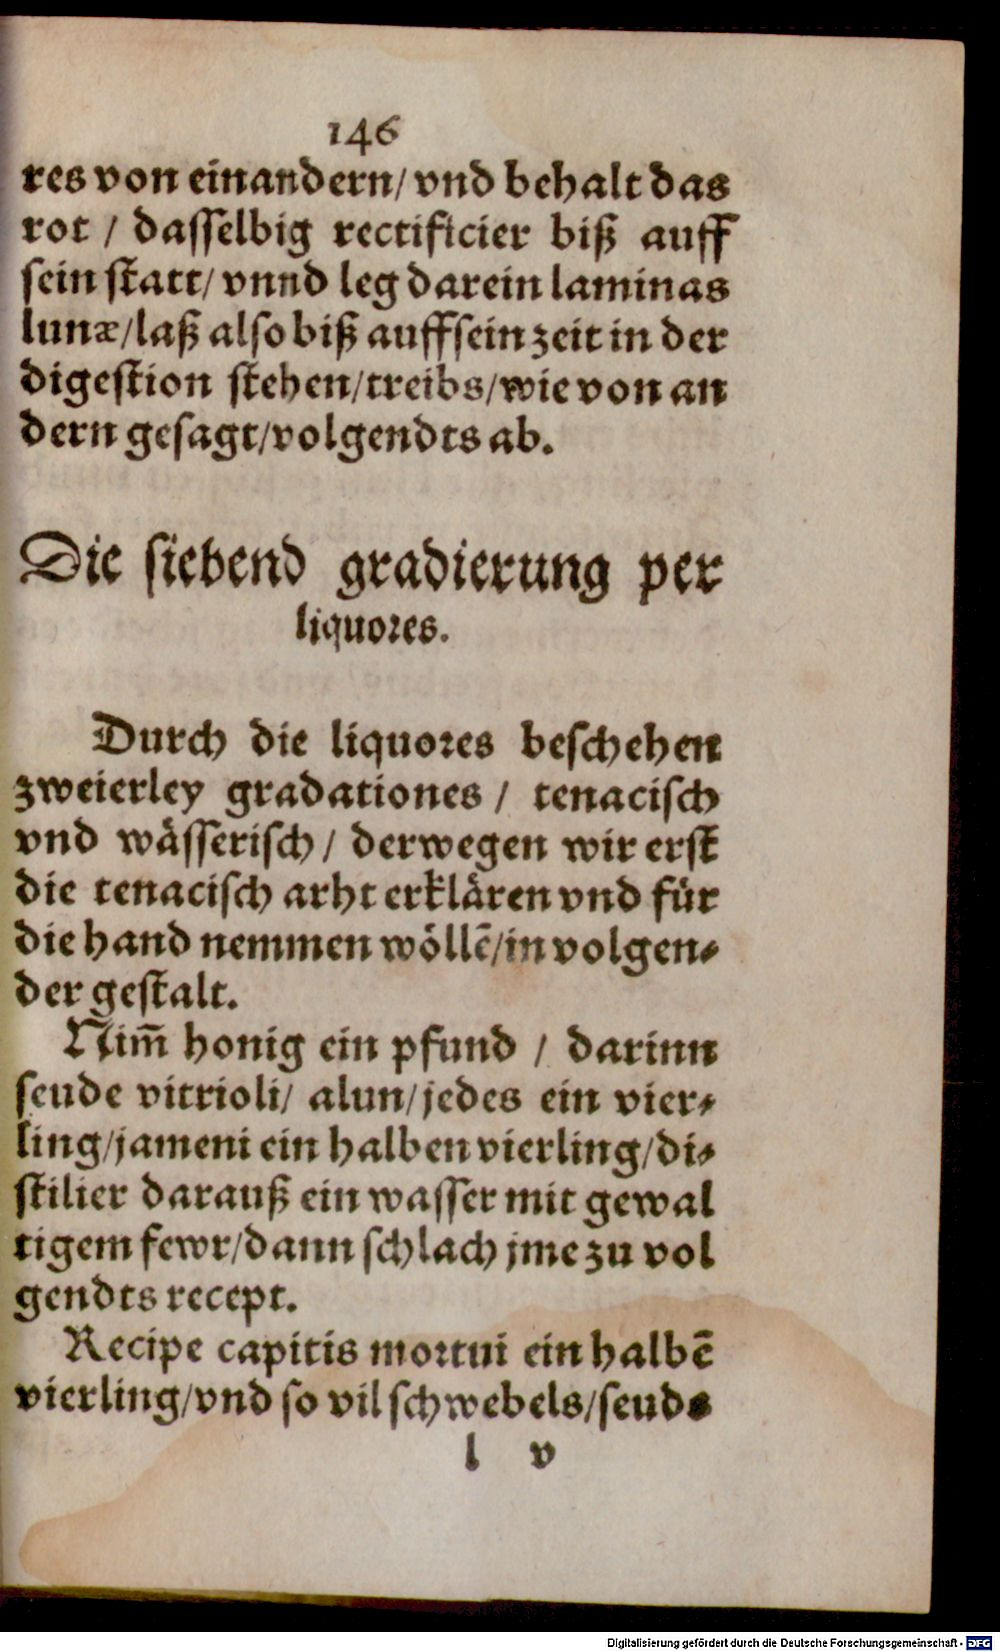 146
res von einandern/ vnd behalt das
rot / dasselbig rectificier biß auff
sein statt/ vnnd leg darein laminas
lunæ/laß also biß auff sein zeit in der
digestion stehen/treibs/wie von an
dern gesagt/volgendts ab.
Die siebend gradierung per
liquores.
Durch die liquores beschehen
zweierley gradationes / tenacisch
vnd wässerisch / derwegen wir erst
die tenacisch arht erklären vnd für
die hand nemmen wöllē/in volgen⸗
der gestalt.
Nim̄ honig ein pfund / darinn
seude vitrioli/ alun/jedes ein vier⸗
ling/jameni ein halben vierling/di⸗
stilier darauß ein wasser mit gewal
tigem fewr/dann schlach jme zu vol
gendts recept.
Recipe capitis mortui ein halbē
vierling/vnd so vil schwebels/seude
l v
Digitalisierung gefördert durch die Deutsche Forschungsgemeinschaft - DFG